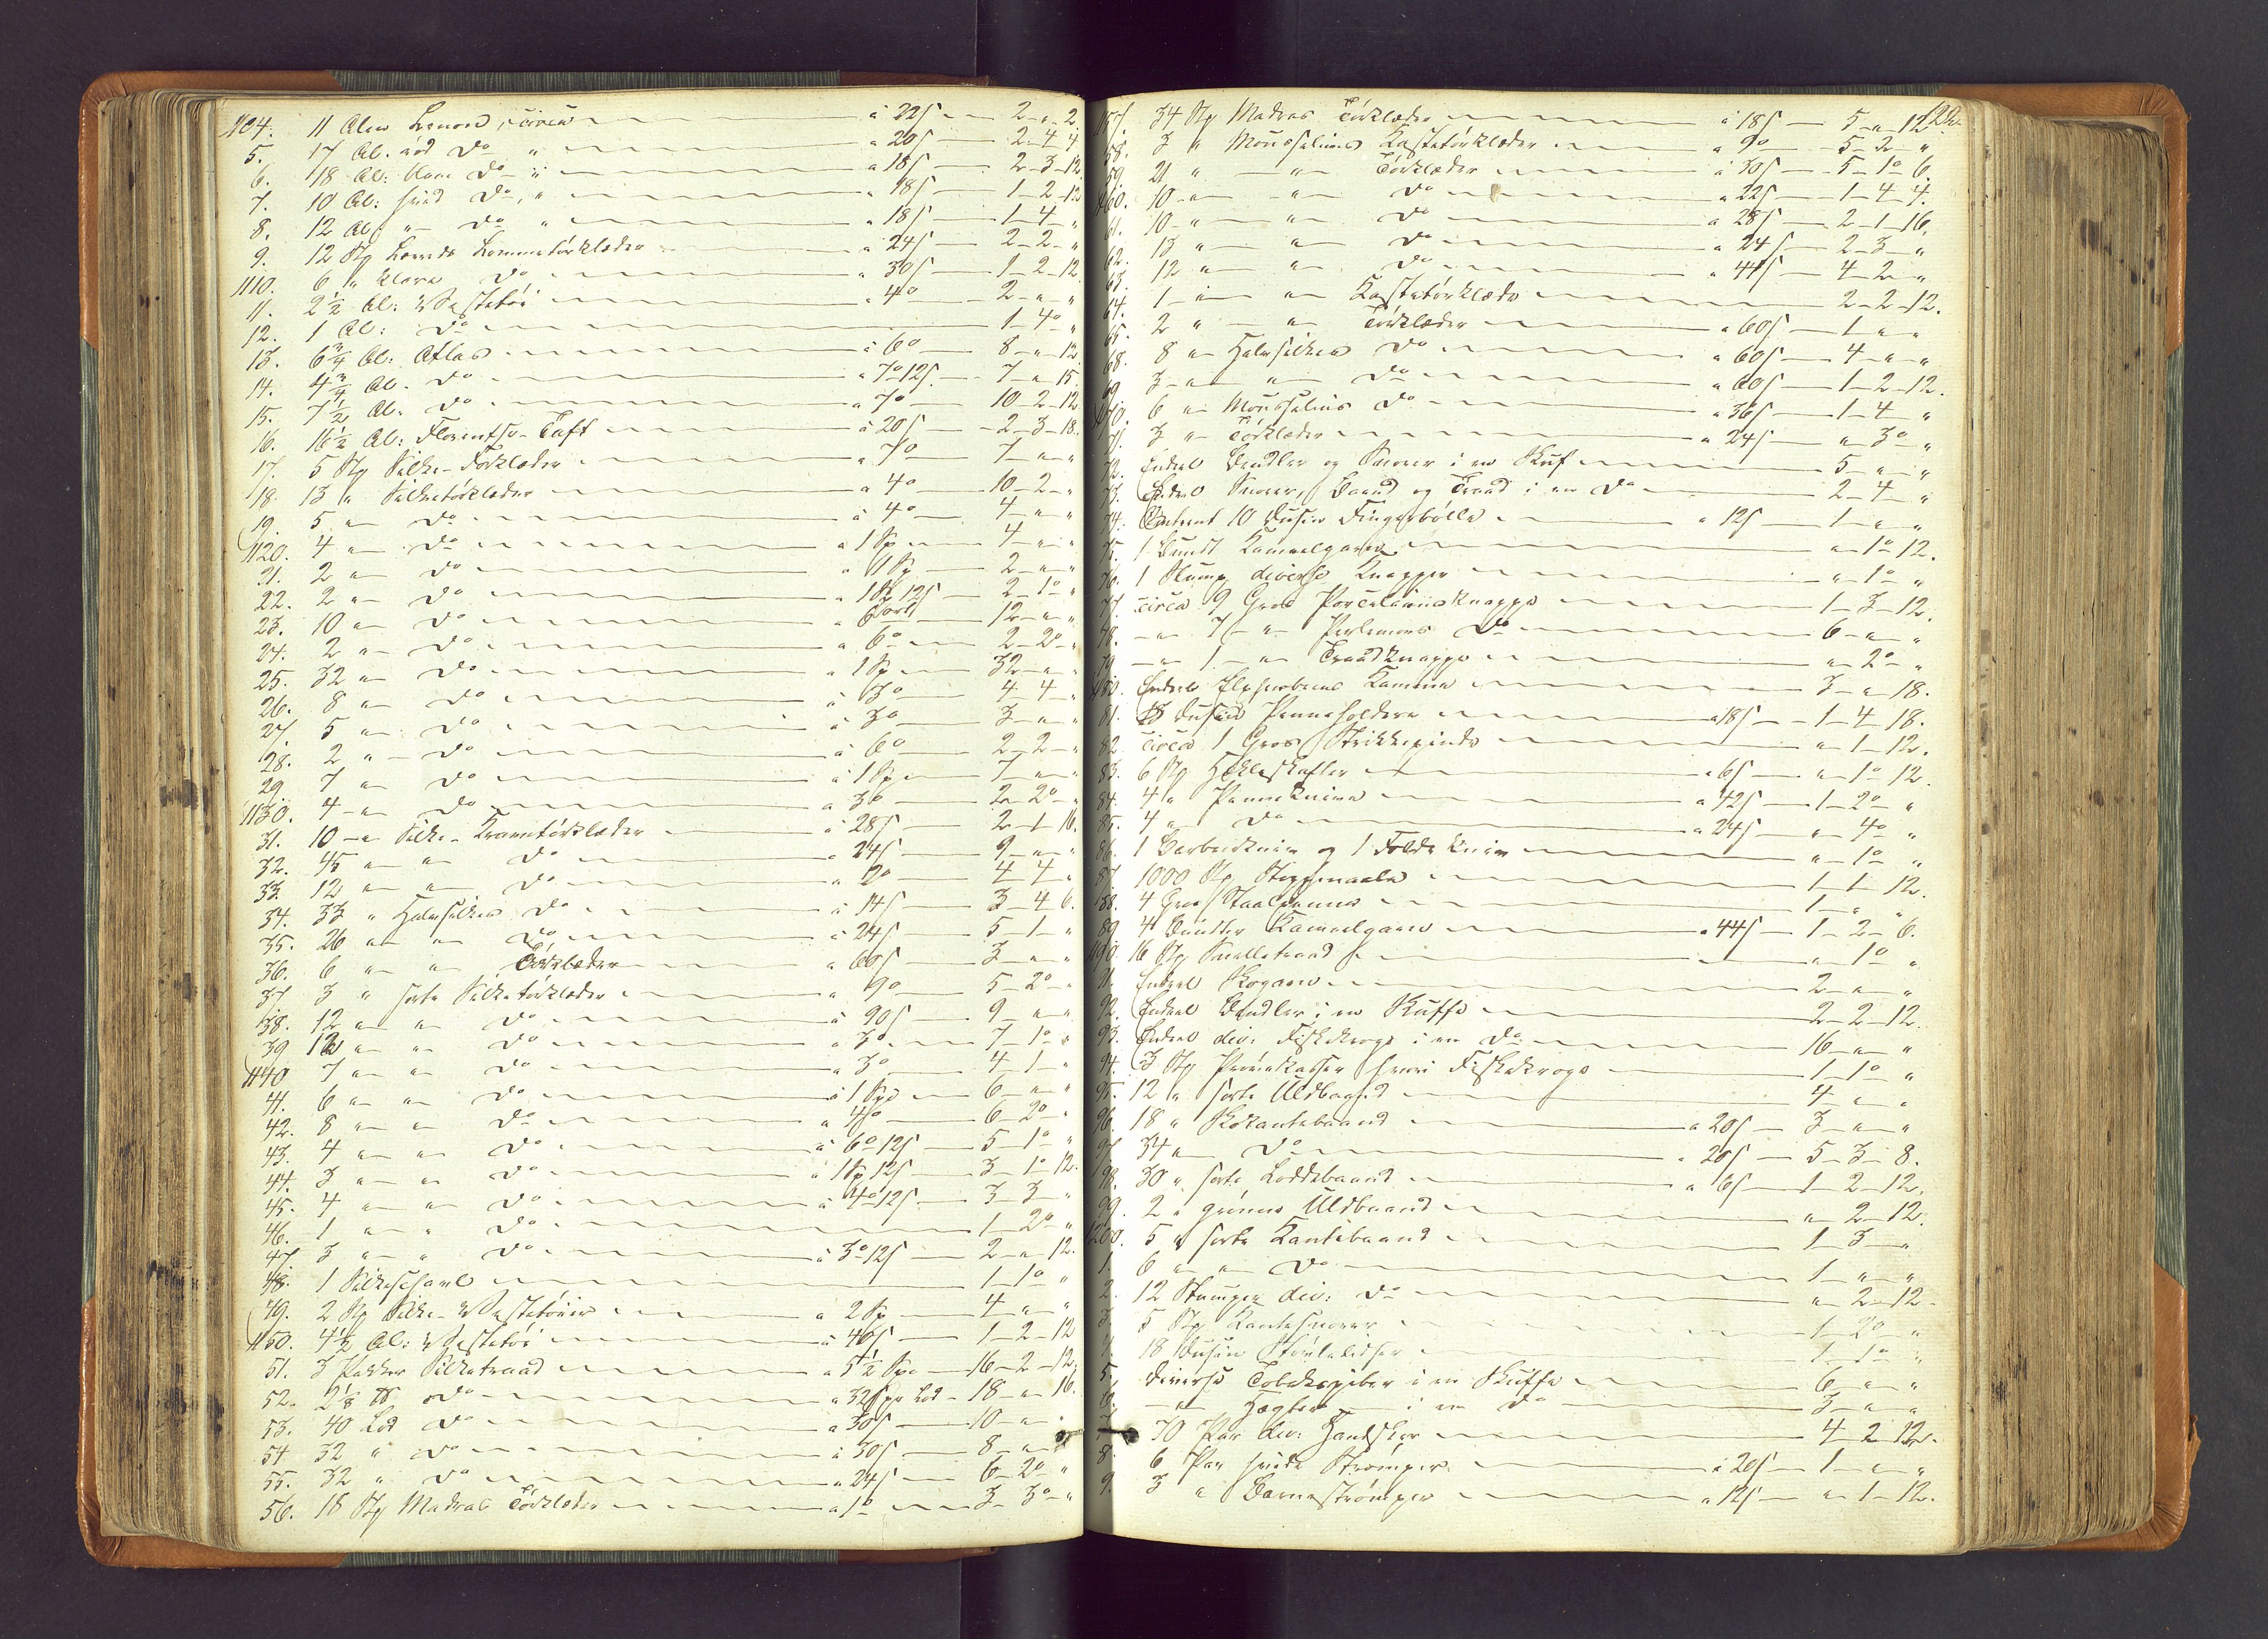 1104. 11 Alen Lerred, circa à 22 s 2 - " - 2
5. 17 Al. rød Do " " 20 s 2 - 4 - 4
6. 18 Al: blaa Do " " 18 s 2 - 3 - 12
7. 10 Al: hvid Do, " " 18 s 1 - 2 - 12
8. 12 Al: " Do " " 18 s 1 - 4 - "
9. 12 Stk Lerreds Lommetörklæder " 24 s 2 - 2 - "
1110. 6 " klare Do " 30 s 1 - 2 - 12
11. 2 1/2 Al: Vestetöi " 4 o 2 - " - "
12. 1 Al: Do 1 - 4 o "
13. 6 3/4 Al: Atlas à 6 o 8 - " - 12
14. 4 3/4 Al. Do " 7 o 12 s 7 - " - 15.
15. 7 1/2 Al. Do " 7 o 10 - 2 - 12
16. 16 1/2 Al: Florentso-Taft à 20 s 2 - 3 - 18.
17. 5 Stk Silke-Forklæder " 7 o 7 - " - "
18. 13 " Silketörklæder " 4 o 10 - 2 - "
19. 5 " Do à 4 o 4 - " - "
1120. 4 " Do " 1 Sp 4 - " - "
21. 2 " Do " 1 Sp 2 - " - "
22. 2 " Do " 1 Sp 12 s 2 - 1 o "
23. 10 " Do " 6 ort 12 - " - "
24. 2 " Do " 6 o 2 - 2 o "
25. 32 " Do " 1 Sp 32 - " - "
26. 8 " Do à 3 o 4 - 4 - "
27 5 " Do à 3 o 3 - " - "
28. 2 " Do à 6 o 2 - 2 - "
29 7 " Do à 1 Sp 7 - " - "
1130. 4 " Do à 3 o 2 - 2 o "
31. 10 " Silke-Kravetörklæder à 28 s 2 - 1 - 16.
32. 45 " " Do " 24 s 9 - " - "
33. 12 " " Do " 2 o 4 - 4 - "
34. 33 " Halvsilkes Do à 14 s 3 - 4 - 6.
35. 26 " " Do à 24 s 5 - 1 - "
36. 6 " " Törklæder " 60 s 3 - " - "
37 3 " sorte Silketörklæder " 9 o 5 - 2 o "
38. 12 " " Do à 90 s 9 - " - "
39 12 " " Do " 3 o 7 - 1 o "
1140 7 " " Do " 3 o 4 - 1 - "
41. 6 " " Do à 1 Spd 6 - " - "
42. 8 " " Do " 4 o 6 - 2 o "
43. 4 " " Do à 6 o 12 s 5 - 1 o "
44. 3 " " Do à 1 Sp 12 s 3 - 1 o 12.
45. 4 " " Do à 4 o 12 s 3 - 3 - "
46. 1 " " Do 1 - 2 o "
47 3 " " Do à 3 o 12 s 2 - " - 12.
48. 1 Silkeschavl 1 - 1 o "
49. 2 Stk Silke-Vestetöier à 2 Sp 4 - " - "
1150. 4 1/2 Al: Vestetöi à 46 s 1 - 2 - 12
51. 3 Pakker Silketraad à 5 1/2 Spd 16 - 2 - 12.
52. 2 1/8 ℔ Do à 32 s pr Lod 18 - " - 16.
53. 40 Lod Do à 30 s 10 - " - "
54 32 " Do à 30 s 8 - " - "
55. 32 " Do " 24 s 6 - 2 o "
56. 18 Stk Madras Törklæder " 1 o 3 - 3 o "
122.
1157 34 Stk Madras Törklæder à 18 s 5 - " - 12
58. 3 " Mousselins Kastetörklæder " 9 o 5 - 2 - "
59 21 " " Törklæder à 30 s 5 - 1 o 6.
1160. 10 " " Do " 22 s 1 - 4 - 4.
61. 10 " " Do " 28 s 2 - 1 - 16.
62. 13 " " Do " 24 s 2 - 3 - "
63. 12 " " Do " 44 s 4 - 2 - "
64. 1 " " Kastetörklæde 2 - 2 - 12.
65. 2 " " Törklæder " 60 s 1 - " - "
68. 8 " Halvsilkes Do " 60 s 4 - " - "
69 3 " " Do " 60 s 1 - 2 - 12.
1170. 6 " Mousselins Do " 36 s 1 - 4 "
71. 3 " Törklæder " 24 s " 3 o "
72. Endeel Bendler og Snorer i en Skuf 5 - " - "
73. Endeel Snorer, Baand og Traad i en Do 2 - 4 - "
74. Omtrent 10 Dusin Fingerbölle " 12 s 1 - " - "
75. 1 Bundt Kameelgarn " 1 o 12.
76. 1 Slump diverse Knapper " 1 o "
77. circa 9 Gros Porcelainsknappe 1 - 3 - 12.
78. " 7 " Perlemors Do 6 - " - "
79 " 1 " Traadknappe " 2 o "
1180. Endeel Elfenbeens Kamme 3 - " - 18.
81. 13 Dusin Penneholdere " 18 s 1 - 4 - 18.
82. circa 1 Gros Strikkepinde " 1 - 12.
83. 6 Stk Hekleskafter " 6 s " 1 o 12.
84. 4 " Penneknive " 42 s 1 - 2 o "
85. 4 " Do " 24 s " 4 o "
86. 1 Barbeerkniv og 1 Foldekniv " 1 o "
87 1000 Stk Stoppenaale 1 - 1 - 12.
88. 4 Gros Staalpenne 1 - " - "
89 4 Bundter Kameelgarn " 44 s 1 - 2 - 6.
1190. 16 Stk " 1 o "
91. Endeel 2 - " - "
92. Endeel Bendler i en Skuffe 2 - 2 - 12.
93. Endeel div: Fiskekroge i en Do 16 - " - "
94. 3 Stk Prövekasser hvori Fiskekroge 1 - 1 o "
95. 12 " sorte Uldbaand 4 - " - "
96. 18 " Skokantebaand " 20 s 3 - " - "
97 34 " Do " 20 s 5 - 3 - 8.
98. 30 " sorte Loddebaand " 6 s 1 - 2 - 12.
99. 2 " grönne Uldbaand " 2 - 12.
1200. 5 " sorte Kantebaand 1 - 3 - "
1. 6 " " Do 1 - " - "
2. 12 Stumper div: Do " 2 - 12.
3. 5 Stk Kantesnorer 1 - 2 o "
4. 18 Dusin 1 - 1 o "
5. diverse Tobakspiber i en Skuffe 6 - " - "
6. " Hægter i en Do 3 - " - "
7. 70 Par div: Handsker 4 - 2 - 12.
8. 6 Par hvide Strömper à 20 s 1 - " - "
9. 3 " Barneströmper " 12 s " 1 - 12.